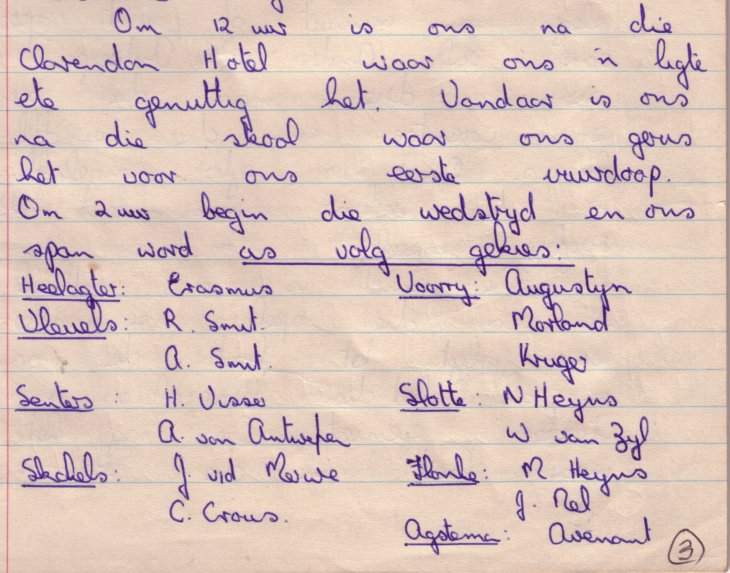 Om 12 uur is ons na die
Clarendon Hotel waar ons 'n ligte
ete genuttig het. Vandaar is ons
na die skool waar ons gerus
het voor ons eerste vuurdoop.
Om 2 uur begin die wedstryd en ons
span word as volg gekies:
Heelagter: Erasmus Voorry: Augustyn
Vleuels: R. Smit. Morland
A. Smit. Kruger
Senters: H. Visser Slotte: N Heyns
A. van Antwerpen W van Zyl
Skakels: J. vid Merwe Flanke: M Heyns
C. Crous. J. Nel
Agsteman: Avenant
3